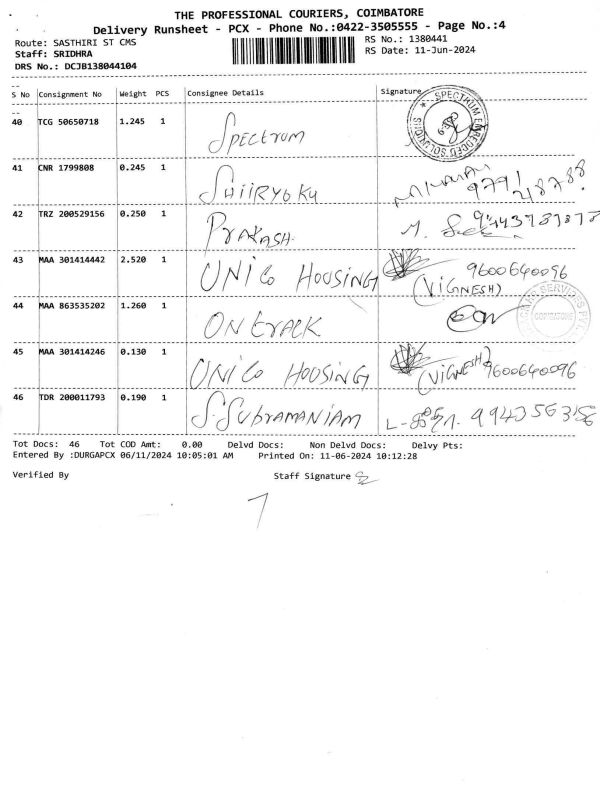 THE PROFESSIONAL COURIERS, COIMBATORE
Delivery Runsheet - PCX - Phone No.:0422-3505555 - Page No.:4
Route: SASTHIRI ST CMS RS No.: 1380441
Staff: SRIDHRA RS Date: 11-Jun-2024
DRS No.: DCJB138044104
S No Consignment No Weight PCS Consignee Details Signature
40 TCG 50650718 1.245 1 SPECTRUM
41 CNR 1799808 0.245 1 SHIIRYOKU
42 TRZ 200529156 0.250 1 PRAKASH.
43 MAA 301414442 2.520 1 UNICO HOUSING 9600640096
(VIGNESH)
44 MAA 863535202 1.260 1 ONTRACK
COIMBATORE
45 MAA 301414246 0.130 1 UNICO HOUSING (VIGNESH) 9600640096
46 TDR 200011793 0.190 1 S.SUBRAMANIAM
Tot Docs: 46 Tot COD Amt: 0.00 Delvd Docs: Non Delvd Docs: Delvy Pts:
Entered By :DURGAPCX 06/11/2024 10:05:01 AM Printed On: 11-06-2024 10:12:28
Verified By Staff Signature
7